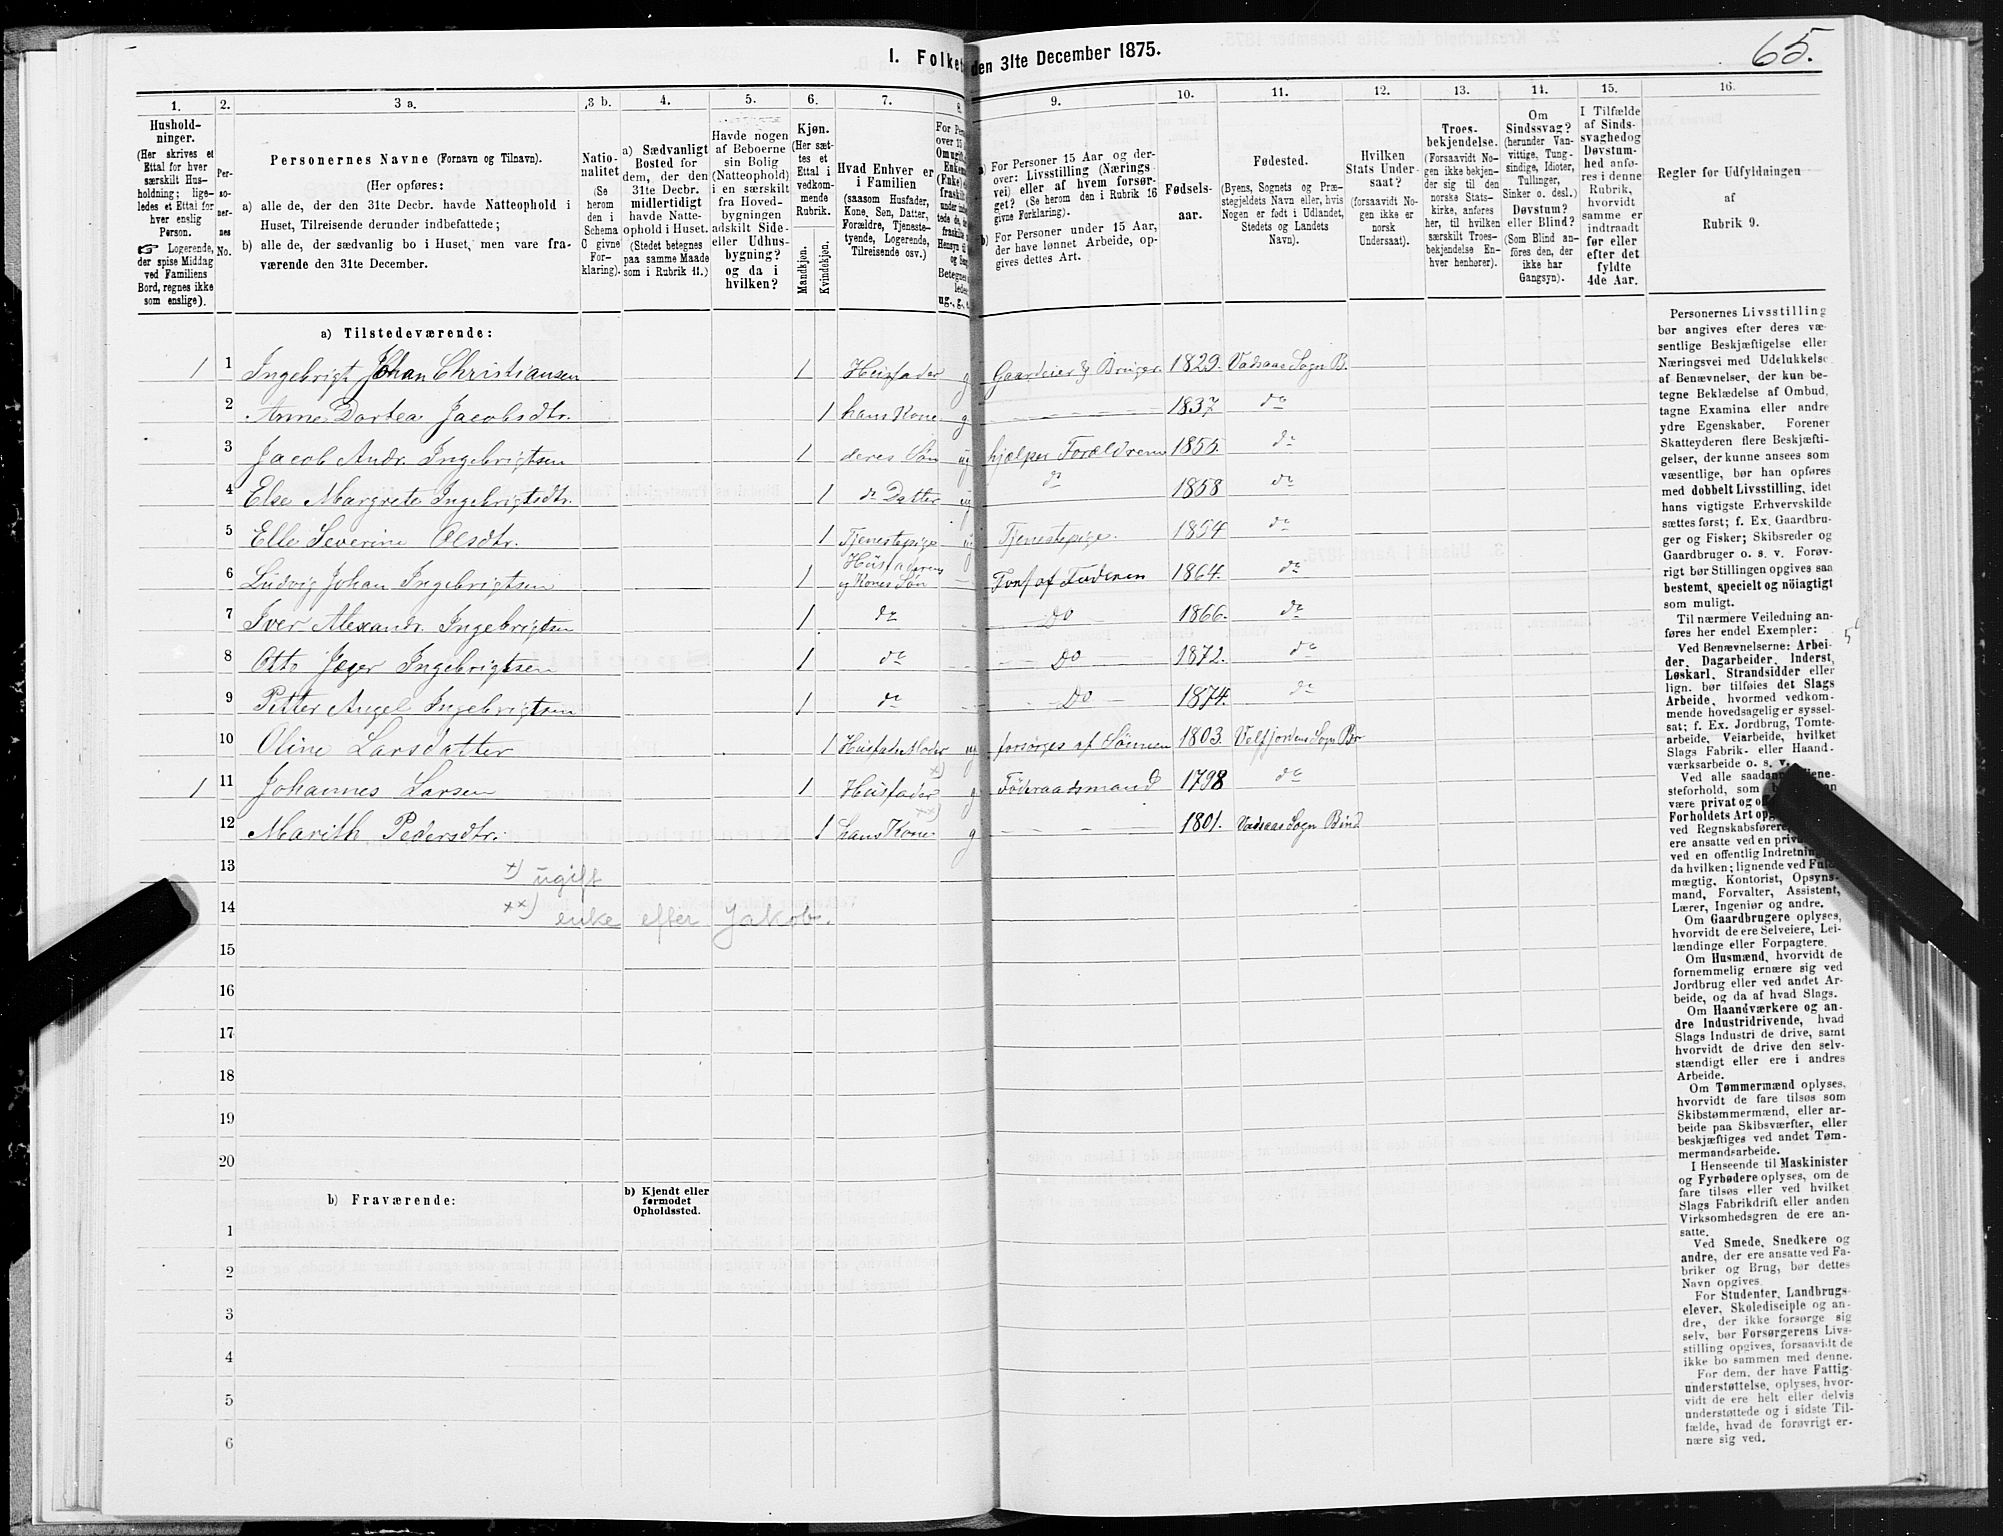 1. Folket
den 31te December 1875.
65.
1. 2. 3 a. 3 b. 4. 5. 6. 7. 8. 9. 10. 11. 12. 13. 14. 15. 16.
Hushold-
ninger.
(Her skrives et
Ettal for hver
særskilt Hus-
holdning; lige-
ledes et Ettal for
hver enslig
Person.
☞ Logerende,
der spise Middag
ved Familiens
Bord, regnes ikke
som enslige).
Per-
so-
ner-
nes
No.
Personernes Navne (Fornavn og Tilnavn).
(Her opføres:
a) alle de, der den 31te Decbr. havde Natteophold i
Huset, Tilreisende derunder indbefattede;
b) alle de, der sædvanlig bo i Huset, men vare fra-
værende den 31te December.
Natio-
nalitet
(Se
herom
den i
Schema
C givne
For-
klaring).
a) Sædvanligt
Bosted for
dem, der den
31te Decbr.
midlertidigt
havde Natte-
ophold i Huset.
(Stedet betegnes
paa samme Maade
som i Rubrik 11.)
Havde nogen
af Beboerne
sin Bolig
(Natteophold)
i en særskilt
fra Hoved-
bygningen
adskilt Side-
eller Udhus-
bygning?
og da i
hvilken?
Kjøn.
(Her sæt-
tes et
Ettal i
vedkom-
mende
Rubrik.
Mandkjøn.
Kvindekjøn.
Hvad Enhver er
i Familien
(saasom Husfader,
Kone, Søn, Datter,
Forældre, Tjeneste-
tyende, Logerende,
Tilreisende osv.)
a) For Personer 15 Aar og der-
over: Livsstilling (Nærings
vei) eller af hvem forsør-
get? (Se herom den i Rubrik 16
givne Forklaring).
b) For Personer under 15 Aar,
der have lønnet Arbeide, op-
gives dettes Art.
Fødsels-
aar.
Fødested.
(Byens, Sognets og Præ-
stegjeldets Navn eller, hvis
Nogen er født i Udlandet,
Stedets og Landets
Navn).
Hvilken
Stats Under-
saat?
(forsaavidt No-
gen ikke er
norsk
Undersaat).
Troes-
bekjendelse.
(Forsaavidt No-
gen ikke bekjen-
der sig til den
norske Stats-
kirke, anføres
her, til hvilken
særskilt Troes-
bekjendelse En-
hver henhører).
Om
Sindssvag?
(herunder Van-
vittige, Tung-
sindige, Idioter,
Tullinger,
Sinker o. desl.)
Døvstum?
eller Blind?
(Som Blind an-
føres den, der
ikke har
Gangsyn).
I Tilfælde
af Sinds-
svaghed og
Døvstum-
hed anfø-
res i denne
Rubrik,
hvorvidt
samme er
indtraadt
før eller
efter det
fyldte
4de Aar.
Regler for Udfyldningen
af
Rubrik 9.
a) Tilstedeværende:
1 1 Ingebrigt Johan Christiansen 1 Husfader g Gaardeier & Bruger 1829. Vadsaas Sogn B.
2 Anne Dortea Jacobsdtr. 1 hans Kone g 1837 do
3 Jacob Andr. Ingebrigtsen 1 deres Søn ug hjælper Forældrene 1855. do
4 Else Margrete Ingebrigtsdtr. 1 do Datter ug do 1858 do
5 Elle Severine Olsdtr. 1 Tjenestepige ug Tjenestepige. 1854 do
6 Ludvig Johan Ingebrigtsen 1 Husfaderens og Kones Søn Fors. af Faderen 1864. do
7 Iver Alexandr. Ingebrigtsen 1 do Do 1866. do
8 Otto Jæger Ingebrigtsen 1 do Do 1872. do
9 Petter Angel Ingebrigtsen 1 do Do 1874. do
10 Oline Larsdatter 1 Husfaders Moder x) ug forsørges af Sønnen 1803. Velfjordens Sogn Br
1 11 Johannes Larsen 1 Husfader xx) g Føderaadsmand 1798 do
12 Marith Pedersdtr. 1 hans Kone g 1801. Vadsaas Sogn Bind
13 x) ugift
14 xx) enke efter Jakob.
15
16
17
18
19
20
b) Fraværende:
b) Kjendt eller
formodet
Opholdssted.
1
2
3
4
5
6
Personernes Livsstilling
bør angives efter deres væ-
sentlige Beskjæftigelse eller
Næringsvei med Udelukkelse
af Benævnelser, der kun be-
tegne Beklædelse af Ombud,
tagne Examina eller andre
ydre Egenskaber. Forener
Skatteyderen flere Beskjæfti-
gelser, der kunne ansees som
væsentlige, bør han opføres
med dobbelt Livsstilling, idet
hans vigtigste Erhvervskilde
sættes først; f. Ex. Gaardbru-
ger og Fisker; Skibsreder og
Gaardbruger o. s. v. Forøv-
rigt bør Stillingen opgives saa
bestemt, specielt og nöiagtigt
som muligt.
Til nærmere Veiledning an-
føres her endel Exempler:
Ved Benævnelserne: Arbei-
der, Dagarbeider, Inderst,
Løskarl, Strandsidder eller
lign. bør tilføies det Slags
Arbeide, hvormed vedkom-
mende hovedsagelig er syssel-
sat; f. Ex. Jordbrug, Tomte-
arbeide, Veiarbeide, hvilket
Slags Fabrik- eller Haand-
værksarbeide o. s. v.
Ved alle saadanne Tjene-
steforhold, som
være privat og
Forholdets Art
ved Regnskabsførere,
ere ansatte ved en
ved en offentlig Indretning
da hvilken; lignende ved Fuld-
mægtig, Kontorist, Opsyns-
mand, Forvalter, Assistent,
Lærer, Ingeniør og andre.
Om Gaardbrugere oplyses,
hvorvidt de ere Selveiere, Lei-
lændinge eller Forpagtere.
Om Husmænd, hvorvidt de
fornemmelig ernære sig ved
Jordbrug eller ved andet Ar-
beide, og da af hvad Slags.
Om Haandværkere og an-
dre Industridrivende, hvad
Slags Industri de drive, samt
hvorvidt de drive den selv-
stændigt eller ere i andres
Arbeide.
Om Tømmermænd oplyses,
hvorvidt de fare tilsøs som
Skibstømmermænd, eller ar-
beide paa Skibsværfter, eller
beskjæftiges ved andet Tøm-
mermandsarbeide.
I Henseende til Maskinister
og Fyrbødere oplyses, om de
fare tilsøs eller ved hvilket
Slags Fabrikdrift eller anden
Virksomhedsgren de ere an-
satte.
Ved Smede, Snedkere og
andre, der ere ansatte ved Fa-
briker og Brug, bør dettes
Navn opgives.
For Studenter, Landbrugs-
elever, Skoledisciple og an-
dre, der ikke forsørge sig
selv, bør Forsørgerens Livs-
stilling opgives, forsaavidt de
ikke bo sammen med denne.
For dem, der have Fattig-
understøttelse, oplyses, hvor-
vidt de ere helt eller delvis
understøttede og i sidste Til-
fælde, hvad de forøvrigt er-
nære sig ved.